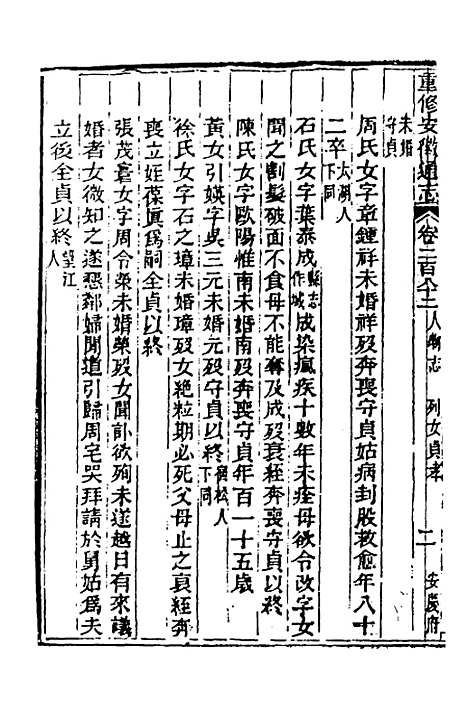 重修安徽通志 卷二百六十二 人物志 列女貞孝 二 安慶府
未婚守貞
周氏女字章鍾祥未婚祥歿奔喪守貞姑病刲股救愈年八十
二卒太湖人下同
石氏女字葉泰成縣志作域成染瘋疾十數年未痊母欲令改字女
聞之劃髮破面不食母不能奪及成歿衰絰奔喪守貞以終
陳氏女字歐陽惟南未婚南歿奔喪守貞年百一十五歲
黃女引媖字吳三元未婚元歿守貞以終宿松人下同
徐氏女字石之璋未婚璋歿女絕粒期必死父母止之衰絰奔
喪立姪葆真為嗣全貞以終
張茂臺女字周令榮未婚榮歿女聞訃欲殉未遂越日有來議
婚者女微知之遂懇鄰婦聞道引歸周宅哭拜請於舅姑為夫
立後全貞以終望江人